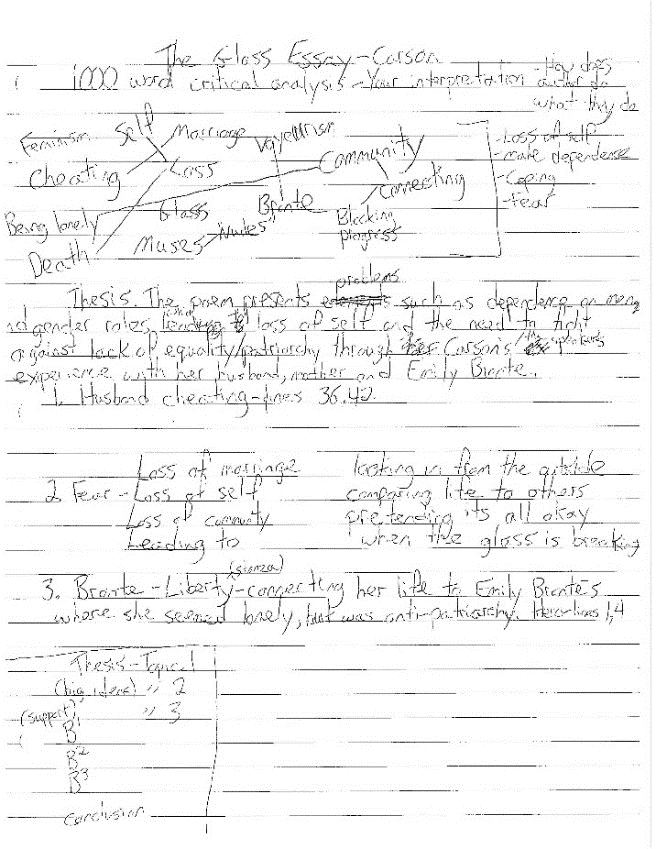 The Glass Essay - Carson
1000 word critical analysis - Your interpretation
- How does
author do
what they do
Feminism
Self
Marriage
Voyeurism
Community
Cheating
Loss
Connecting
Being lonely
Glass
Bronte
Blocking
progress
Death
Muses
"Nudes"
- Loss of self
- male dependence
- Coping
- Fear
problems
Thesis. The poem presents such as dependence on men,
gender roles, loss of self and the need to fight
against lack of equality/patriarchy through Carson's/the
experience with her husband, mother and Emily Bronte.
1. Husband cheating - lines 36-42.
Loss of marriage
2 Fear - Loss of self
Loss of community
Leading to
looking in from the outside
comparing life to others
pretending its all okay
when the glass is breaking
(stanza)
3. Bronte - Liberty - connecting her life to Emily Brontes
where she seemed lonely, but was anti-patriarchy. lines 1,4
Thesis - Topical
(big ideas) " 2
(support) " 3
B1
B2
B3
Conclusion